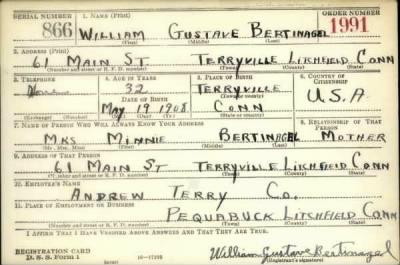 SERIAL NUMBER 1. NAME (Print) ORDER NUMBER
866 WILLIAM GUSTAVE BERTINAGEL 1991
(First) (Middle) (Last)
2. ADDRESS (Print)
61 MAIN ST TERRYVILLE LITCHFIELD CONN
(Number and street or R. F. D. number) (Town) (County) (State)
3. TELEPHONE 4. AGE IN YEARS 5. PLACE OF BIRTH 6. COUNTRY OF CITIZENSHIP
None 32 TERRYVILLE U.S.A
DATE OF BIRTH (Town or county)
MAY 19 1908 CONN
(Mo.) (Day) (Yr.) (State or country)
7. NAME OF PERSON WHO WILL ALWAYS KNOW YOUR ADDRESS 8. RELATIONSHIP OF THAT PERSON
MRS MINNIE BERTINAGEL MOTHER
(Mr., Mrs., Miss) (First) (Middle) (Last)
9. ADDRESS OF THAT PERSON
61 MAIN ST TERRYVILLE LITCHFIELD CONN
(Number and street or R. F. D. number) (Town) (County) (State)
10. EMPLOYER'S NAME
ANDREW TERRY CO.
11. PLACE OF EMPLOYMENT OR BUSINESS
PEQUABUCK LITCHFIELD CONN
(Number and street or R. F. D. number) (Town) (County) (State)
I AFFIRM THAT I HAVE VERIFIED ABOVE ANSWERS AND THAT THEY ARE TRUE.
REGISTRATION CARD
D. S. S. Form 1 16—17105 William Gustave Bertinagel
(Registrant's signature)